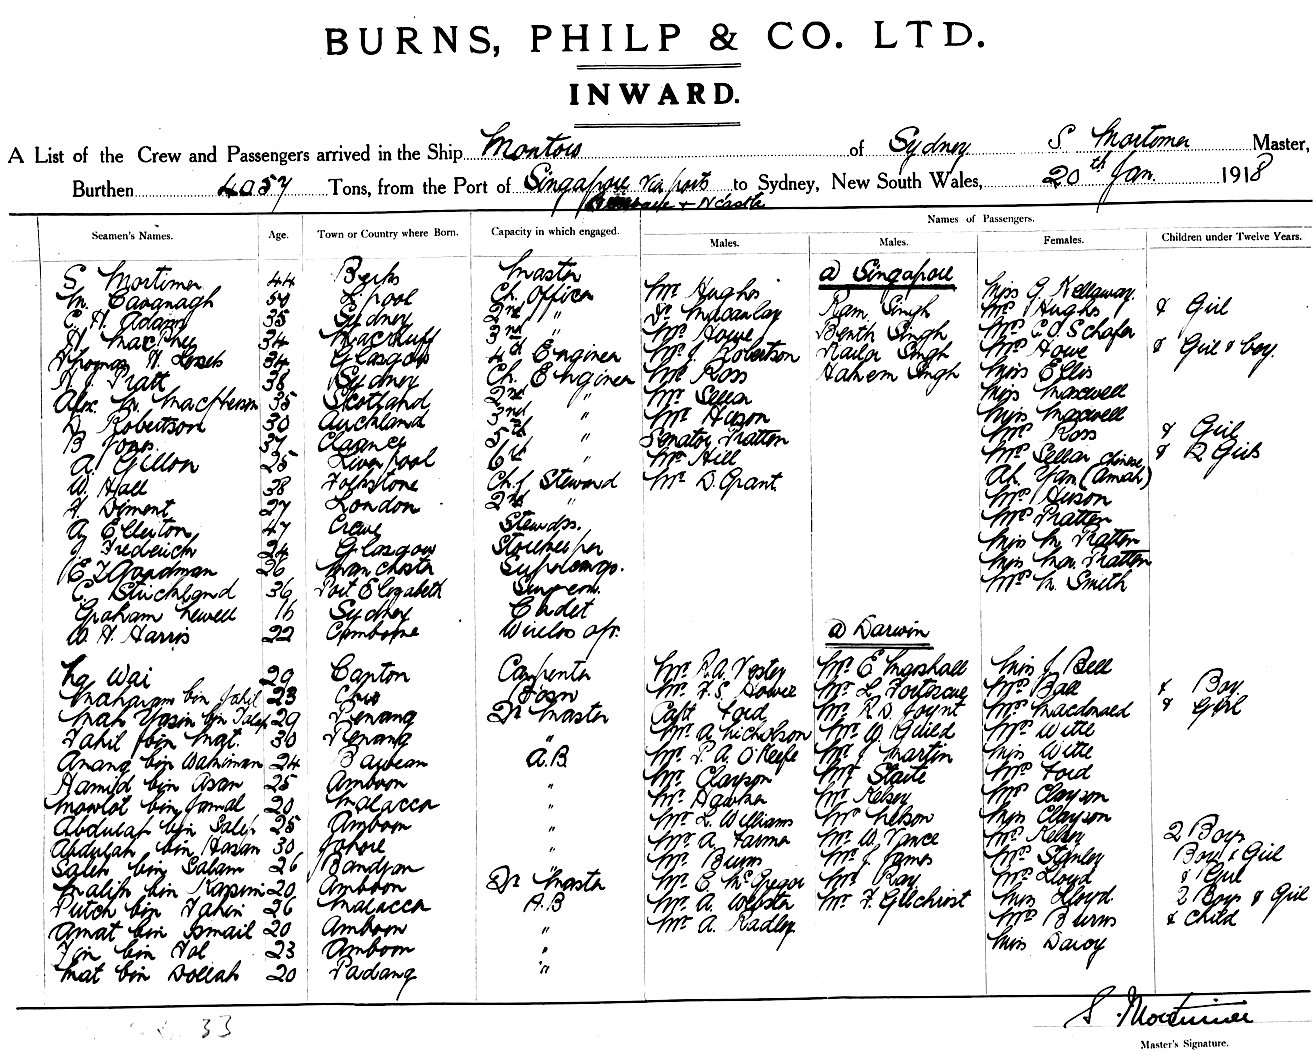 BURNS, PHILP & CO. LTD.
INWARD.
A List of the Crew and Passengers arrived in the Ship Montoro of Sydney S Mortimer Master,
Burthen 4057 Tons, from the Port of Singapore via ports to Sydney, New South Wales, 20th Jan. 1918
+ N'castle
Names of Passengers.
Seamen's Names. Age. Town or Country where Born. Capacity in which engaged. Males. Males. Females. Children under Twelve Years.
@ Singapore
S Mortimer 44 Berks Master
M. Cavanagh 50 L'pool Ch. Officer Mr Hughes Miss G Kellaway
C. H. Adams 35 Sydney 2nd " Dr Macaulay Ram Singh Mrs Hughes & Girl
34 Macduff 3rd " Mr Howe Singh Mrs C S Schafer
Thomas H 34 Glasgow 4th Engineer Mr J Robertson Singh Mrs Howe & Girl & boy
Pratt 38 Sydney Ch. Engineer Mr Ross Hakem Singh Miss Ellis
Alex. M. Macpherson 35 Scotland 2nd " Mr Sellar Miss Maxwell
Robertson 30 Auckland 3rd Mr Huson Miss Maxwell
B Jones 37 5th " Senator Pratten Mrs Ross & Girl
A Gillon 25 Liverpool 6th " Mr Hill Mrs Sellar & 2 Girls
W. Hall 38 Folkstone Ch. f Steward Mr D. Grant Ah Yan (Chinese Amah)
Diment 27 London 2nd " Mrs Huson
A Ellerton 47 Crewe Stewdss. Mrs Pratten
J Frederick 24 Glasgow Storekeeper Miss M. Pratten
E J Goodman 26 Manchester Supercargo. Miss Pratten
C Strickland 36 Port Elizabeth Surgeon. Mrs M. Smith
Graham Newell 16 Sydney Cadet
W. H. Harris 22 Camborne Wireless opr.
@ Darwin
Wai 29 Canton Carpenter Mr R.A. Vestey Mr E Marshall Miss J Bell
Maharam bin Jahil 23 Bosn Mr F.S. Howie Mr L. Fortescue Mrs & Boy
Mat Yasin bin 29 Penang Qr Master Capt Ford Mr R.D. Joynt Mrs Macdonald & Girl
Tahil bin Mat. 30 Penang " Mr A Nicholson Mr W Guild Mrs Witte
Anang bin 24 Baybean A.B. Mr P. A. O'Keefe Mr J Martin Miss Witte
Hamid bin Asan 25 Amboon " Mr Clayson Mr Staite Mrs Ford
bin Jamal 20 Malacca " Mr Hawker Mr Kelsey Mrs Clayson
Abdulah bin Saleh 25 Amboon " Mr L. Williams Mr Nelson Miss Clayson
Abdulah bin Hasan 30 Johore " Mr A Farmer Mr W. Vance Mrs Kelsey 2 Boys
Saleh bin Salam 26 " Mr Burns Mr J. James Mrs Stanley Boy & Girl
Malip bin 20 Amboon Qr Master Mr E McGregor Mr Ray Mrs Lloyd & Girl
Putch bin Tahir 26 Malacca A.B Mr A. Webster Mr F. Gilchrist Miss Lloyd 2 Boys & Girl
Amat bin Ismail 20 Amboon " Mr A. Radley Mrs Burns & Child
bin 23 Amboon " Miss Davoy
Mat bin Dollah 20 Padang "
33
S. Mortimer
Master's Signature.